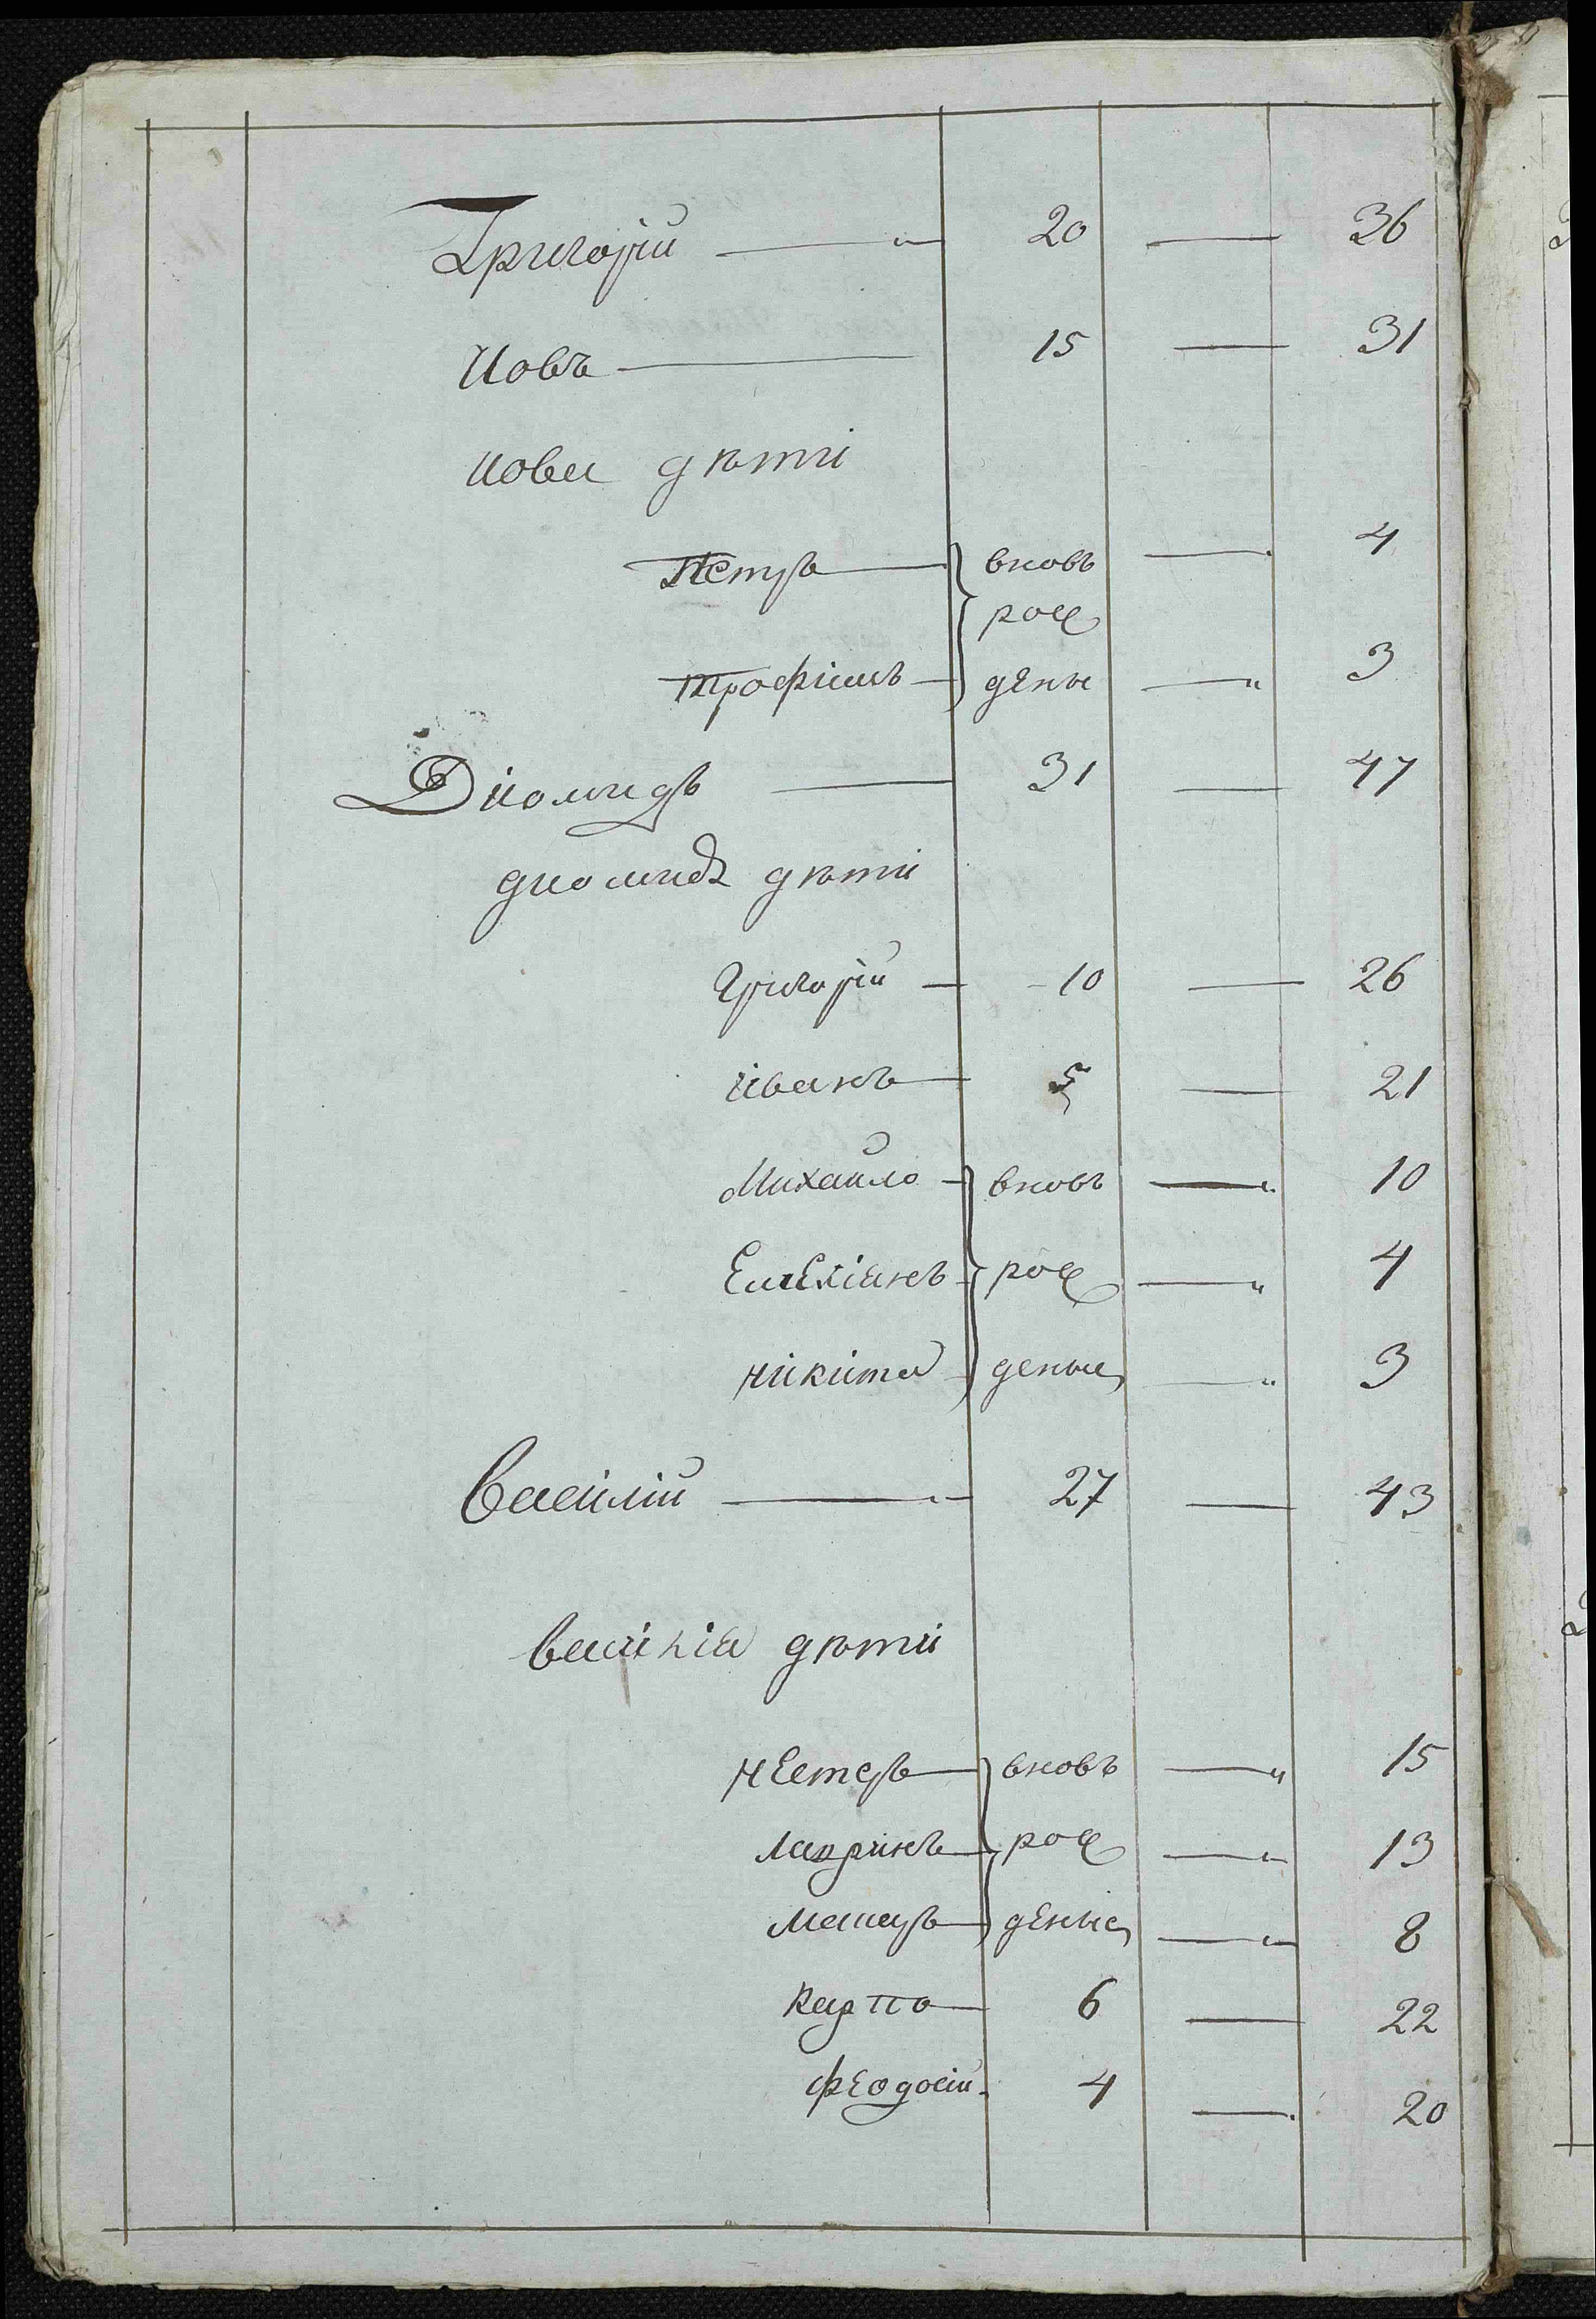 Григорій — 20 — 36
Иовъ — 15 — 31
иова дѣти
Петръ — вновь — 4
рож
Трофимъ — дены — 3
Диомидъ — 31 — 47
диомида дѣти
Григорій — 10 — 26
иванъ — 5 — 21
Михайло — вновь — 10
Емеліанъ — рож — 4
никита — деные — 3
Василій — 27 — 43
василіа дѣти
нестеръ — вновь — 15
рож — 13
деные — 8
карпо — 6 — 22
феодосій — 4 — 20